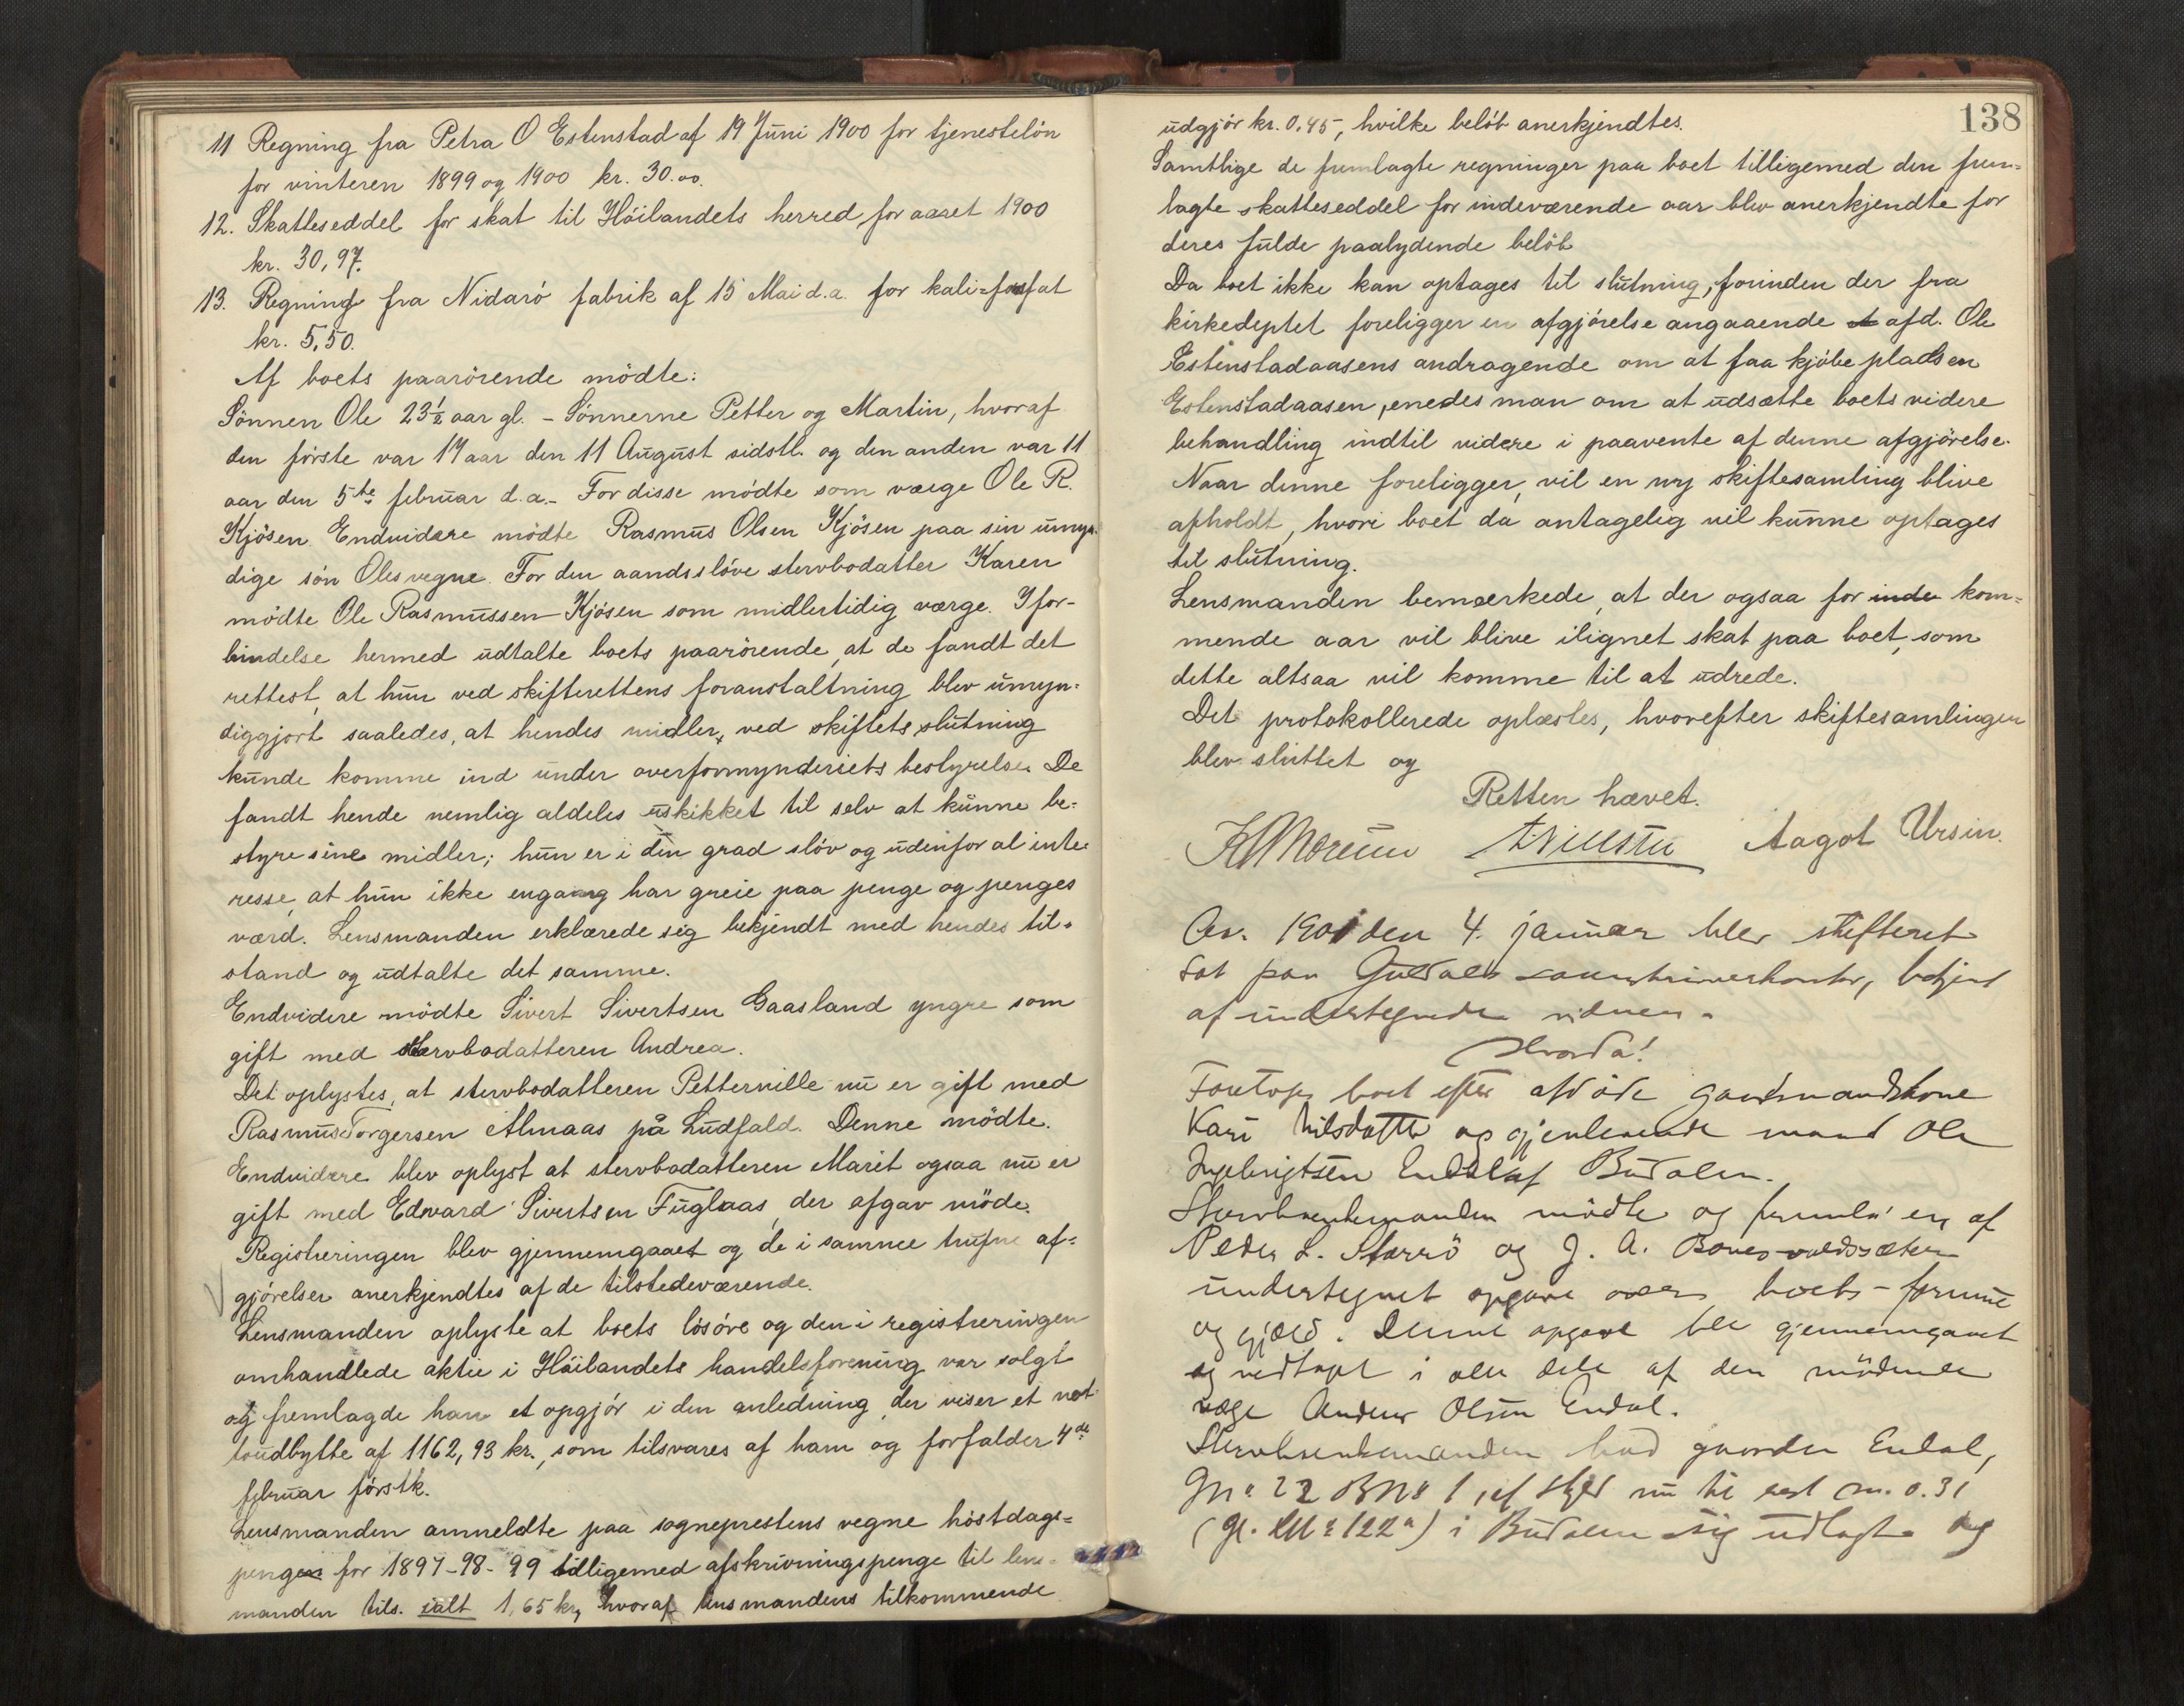 11 Regning fra Petra O Estenstad af 19 Juni 1900 for tjenesteløn
for vinteren 1899 og 1900 kr. 30.00.
12. Skatteseddel for skat til Höilandets herred for aaret 1900
kr. 30,97.
13. Regning fra Nidarö fabrik af 15 Mai d.a. for kali-fosfat
kr. 5,50.
Af boets paarörende mödte:
Sönnen Ole 23½ aar gl. - Sönnerne Petter og Martin, hvoraf
den förste var 19 aar den 11 August sidstl. og den anden var 11
aar den 5te februar d.a. - For disse mödte som værge Ole R.
Kjösen. Endvidere mödte Rasmus Olsen Kjösen paa sin umyn-
dige sön Oles vegne. For den aandsslöve stervbodatter Karen
mödte Ole Rasmussen Kjösen som midlertidig værge. I for-
bindelse hermed udtalte boets paarörende, at de fandt det
rettest, at hun ved skifterettens foranstaltning blev umyn-
diggjort saaledes, at hendes midler, ved skiftets slutning
kunde komme ind under overformynderiets bestyrelse. De
fandt hende nemlig aldeles uskikket til selv at kunne be-
styre sine midler; hun er i den grad slöv og udenfor al inte-
resse, at hun ikke engang har greie paa penge og penges
værd. Lensmanden erklærede sig bekjendt med hendes til-
stand og udtalte det samme.
Endvidere mödte Sivert Sivertsen Gaasland yngre som
gift med stervbodatteren Andrea.
Det oplystes, at stervbodatteren Petternille nu er gift med
Rasmus Torgersen Almaas på Ludfald. Denne mödte.
Endvidere blev oplyst at stervbodatteren Marit ogsaa nu er
gift med Edvard Sivertsen Fuglaas, der afgav möde.
Registreringen blev gjennemgaaet og de i samme trufne af-
gjörelser anerkjendtes af de tilstedeværende.
Lensmanden oplyste at boets lösöre og den i registreringen
omhandlede aktie i Höilandets handelsforening var solgt
og fremlagde han et opgjör i den anledning, der viser et net-
toudbytte af 1162,93 kr., som tilsvares af ham og forfalder 4de
februar förstk.
Lensmanden anmeldte paa sogneprestens vegne höstdags-
penge for 1897-98-99 tilligemed afskrivningspenge til lens-
manden tils. ialt 1,65 kr, hvoraf lensmandens tilkommende
138
udgjör kr. 0,45, hvilke belöb anerkjendtes.
Samtlige de fremlagte regninger paa boet tilligemed den frem-
lagte skatteseddel for indeværende aar blev anerkjendte for
deres fulde paalydende belöb
Da boet ikke kan optages til slutning, forinden der fra
kirkedeptet foreligger en afgjörelse angaaende afd. Ole
Estenstadaasens andragende om at faa kjöbe pladsen
Estenstadaasen, enedes man om at udsætte boets videre
behandling indtil videre i paavente af denne afgjörelse.
Naar denne foreligger, vil en ny skiftesamling blive
afholdt, hvori boet da antagelig vil kunne optages
til slutning.
Lensmanden bemærkede, at der ogsaa for inde kom-
mende aar vil blive ilignet skat paa boet, som
dette altsaa vil komme til at udrede.
Det protokollerede oplæstes, hvorefter skiftesamlingen
blev sluttet og
Retten hævet.
Aagot Ursin.
1901 den 4. januar blev skifteret
sat paa Guldals sorenskriverkontor, betjent
af undertegnede vidner.
Hvorda!
Foretoges boet efter afdöde gaardmandskone
Kari Nilsdatter og gjenlevende mand Ole
Ingebrigtsen Endal af Budalen.
Stervboenkemanden mödte og fremla' en af
Peder L. Storrö og J. A.
undertegnet opgave over boets formue
og gjæld. Denne opgave ble gjennemgaaet
og vedtaget i alle dele af den mödende
værge Anders Olsen Endal.
Stervboenkemanden bad gaarden Endal,
Gn: 22 Bn: 1, af skyld nu til rest m. 0.31
(gl. LN: 122a) i Budalen sig udlagt og